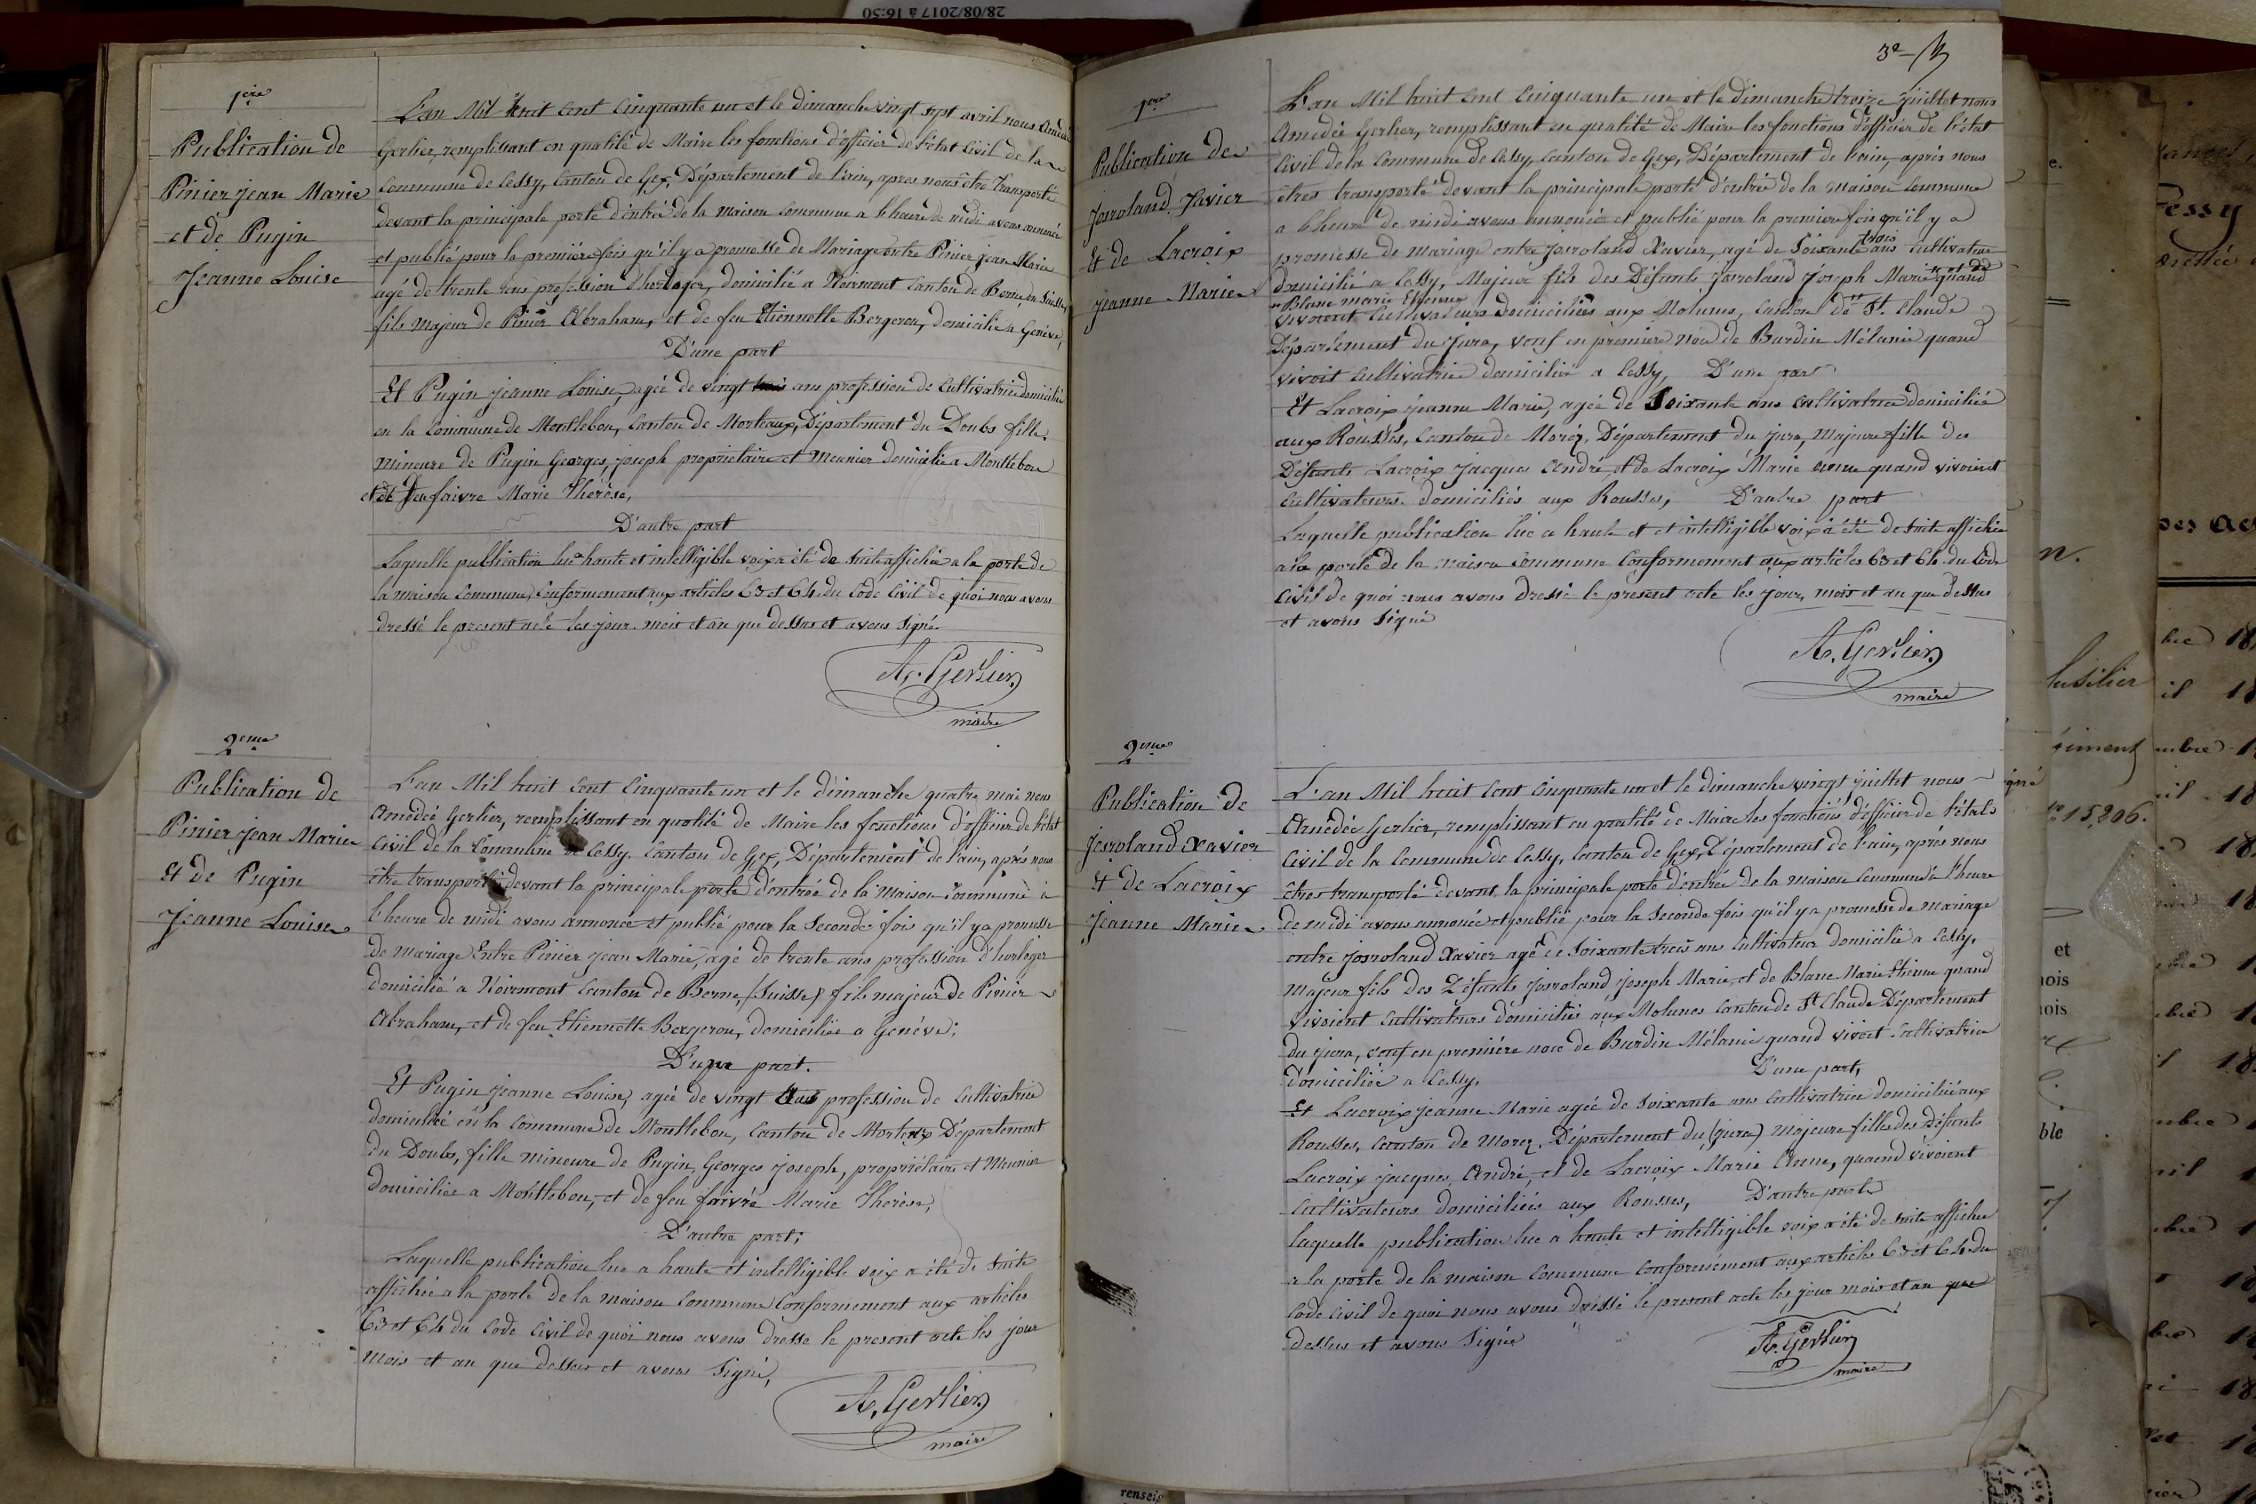 28/08/2017 à 16:50
1ère
Publication de
Pinier jean Marie
et de Pugin
Jeanne Louise
L'an Mil huit Cent Cinquante un et le dimanche vingt sept avril nous Amédée
Gerlier, remplissant en qualité de Maire les fonctions d'officier de l'état Civil de la
Commune de Cessy, Canton de Gex, Département de l'ain, apres nous être transporté
devant la principale porte d'entrée de la maison Commune a l'heure de midi avons annoncé
et publié pour la première fois qu'il y a promesse de Mariage entre Pinier jean Marie
agé de trente ans profession d'horloger, domicilié a Noirmont Canton de Berne, en Suisse,
fils majeur de Pinier Abraham, et de feu Etiennette Bergeron, domicilié a Genève,
D'une part
Et Pugin jeanne Louise, agée de vingt ans profession de Cultivatrice domiciliée
en la Commune de Montlebon, Canton de Morteaux, Département du Doubs fille
mineure de Pugin Georges, joseph propriétaire et Meunier domicilié a Montlebon
et de feu faivre Marie Thérèse,
D'autre part
Laquelle publication lue a haute et intelligible voix a été de suite affichée a la porte de
la maison Commune, Conformement aux articles 63 et 64 du Code Civil de quoi nous avons
dressé le present acte les jour mois et an que dessus et avons Signé.
A. Gerlier
maire
2eme
Publication de
Pinier jean Marie
Et de Pugin
Jeanne Louise
L'an Mil huit Cent Cinquante un et le dimanche quatre mai nous
Amédée Gerlier, remplissant en qualité de Maire les fonctions d'officier de l'état
Civil de la Commune de Cessy, Canton de Gex, Département de l'ain, après nous
être transporté devant la principale porte d'entrée de la Maison Commune à
l'heure de midi avons annoncé et publié pour la Seconde fois qu'il y a promesse
de mariage Entre Pinier jean Marie, agé de trente ans profession d'horloger
domicilié à Noirmont Canton de Berne, (Suisse) fils majeur de Pinier
Abraham, et de feu Etiennette Bergeron, domiciliée a Genève;
D'une part.
Et Pugin jeanne Louise, agée de vingt ans profession de Cultivatrice
domiciliée en la Commune de Montlebon, Canton de Morteux Département
du Doubs, fille mineure de Pugin Georges joseph, propriétaire et Meunier
domicilié a Montlebon, et de feu faivre Marie Thérèse,
D'autre part;
Laquelle publication lue a haute et intelligible voix a été de suite
affichée a la porte de la maison Commune Conformement aux articles
63 et 64 du Code Civil de quoi nous avons dressé le present acte les jour
mois et an que dessus et avons Signé,
A. Gerlier
maire
3e
1ère
Publication de
Josroland Xavier
Et de Lacroix
jeanne Marie
L'an Mil huit Cent Cinquante un et le dimanche treize juillet nous
Amédée Gerlier, remplissant en qualité de Maire les fonctions d'officier de l'état
Civil de la Commune de Cessy, Canton de Gex, Département de l'ain, après nous
êtres transporté devant la principale porte d'entrée de la Maison Commune
a l'heure de midi avons annoncé et publié pour la premiere fois qu'il y a
promesse de mariage entre Josroland Xavier, agé de Soixante trois ans Cultivateur
domicilié a Cessy, Majeur fils des Défunts Josroland Joseph Marie et de quand
Blanc marie Etienne
vivoient Cultivateurs domiciliés aux Molunes, Canton de St. Claude
Département du Jura, veuf en premiere noce de Burdin Mélanie quand
vivoit Cultivatrice domiciliée a Cessy, D'une part
Et Lacroix jeanne Marie, agée de Soixante ans Cultivatrice domiciliée
aux Rousses, Canton de Morez, Département du jura, Majeure fille des
Défunts Lacroix Jacques André et de Lacroix Marie anne quand vivoient
Cultivateurs domiciliés aux Rousses, D'autre part
Laquelle publication lue a haute et et intelligible voix a été de suite affichée
a la porte de la maison Commune Conformement aux articles 63 et 64 du Code
Civil de quoi nous avons dressé le present acte les jour, mois et an que dessus
et avons Signé
A. Gerlier
maire
2eme
Publication de
Josroland Xavier
Et de Lacroix
Jeanne Marie
L'an Mil huit Cent Cinquante un et le dimanche vingt juillet nous
Amédée Gerlier, remplissant en qualité de Maire les fonctions d'officier de l'état
Civil de la Commune de Cessy, Canton de Gex, Département de l'ain, après nous
êtres transporté devant la principale porte d'entrée de la maison Commune à l'heure
de midi avons annoncé et publié pour la Seconde fois qu'il y a promesse de mariage
entre Josroland Xavier agé de Soixante trois ans Cultivateur domicilié a Cessy,
Majeur fils des Défunts Josroland joseph Marie, et de Blanc Marie Etienne quand
vivoient Cultivateurs domiciliés aux Molunes Canton de St Claude Département
du jura, veuf en première noce de Burdin Mélanie quand vivoit Cultivatrice
domiciliée a Cessy. D'une part,
Et Lacroix jeanne Marie agée de Soixante ans Cultivatrice domiciliée aux
Rousses, Canton de Morez, Département du (jura) majeure fille des Défunts
Lacroix jacques André, et de Lacroix Marie Anne, quand vivoient
Cultivateurs domiciliés aux Rousses, D'autre part
laquelle publication lue a haute et intelligible voix a été de suite affichée
a la porte de la maison Commune Conformement aux articles 63 et 64 du
Code Civil de quoi nous avons dressé le present acte les jour mois et an que
dessus et avons Signé
A. Gerlier
maire
15,206.
et
ble
renseig